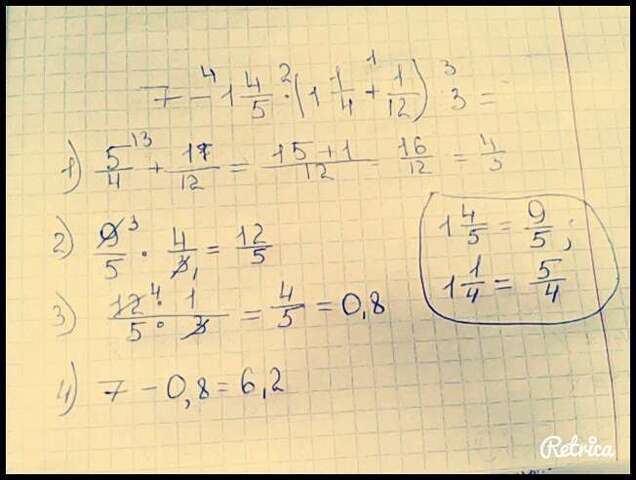 7 -⁴ 1 4/5 ·² (1 1/4 +¹ 1/12) ³ 3 =
1) 5/4 + 1/12 = 15+1/12 = 16/12 = 4/3
2) 9/5 · 4/3 = 12/5
3) 12 · 1/5 · 3 = 4/5 = 0,8
4) 7 - 0,8 = 6,2
1 4/5 = 9/5 ;
1 1/4 = 5/4
Retrica